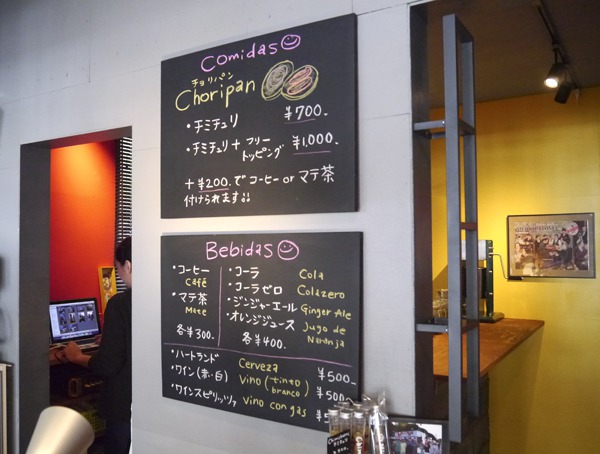 Comidas
チョリパン
Choripan
・チミチュリ ¥700.
・チミチュリ + フリー
トッピング ¥1,000.
+ ¥200.でコーヒー or マテ茶
付けられます!!
Bebidas
・コーヒー
Café
・マテ茶
Mate
各¥300.
・コーラ Cola
・コーラゼロ Colazero
・ジンジャーエール Ginger Ale
・オレンジジュース Jugo de
Naranja
各¥400.
・ハートランド Cerveza ¥500-
・ワイン(赤・白) Vino (tinto
blanco) ¥500-
・ワインスピリッツァ vino con gas